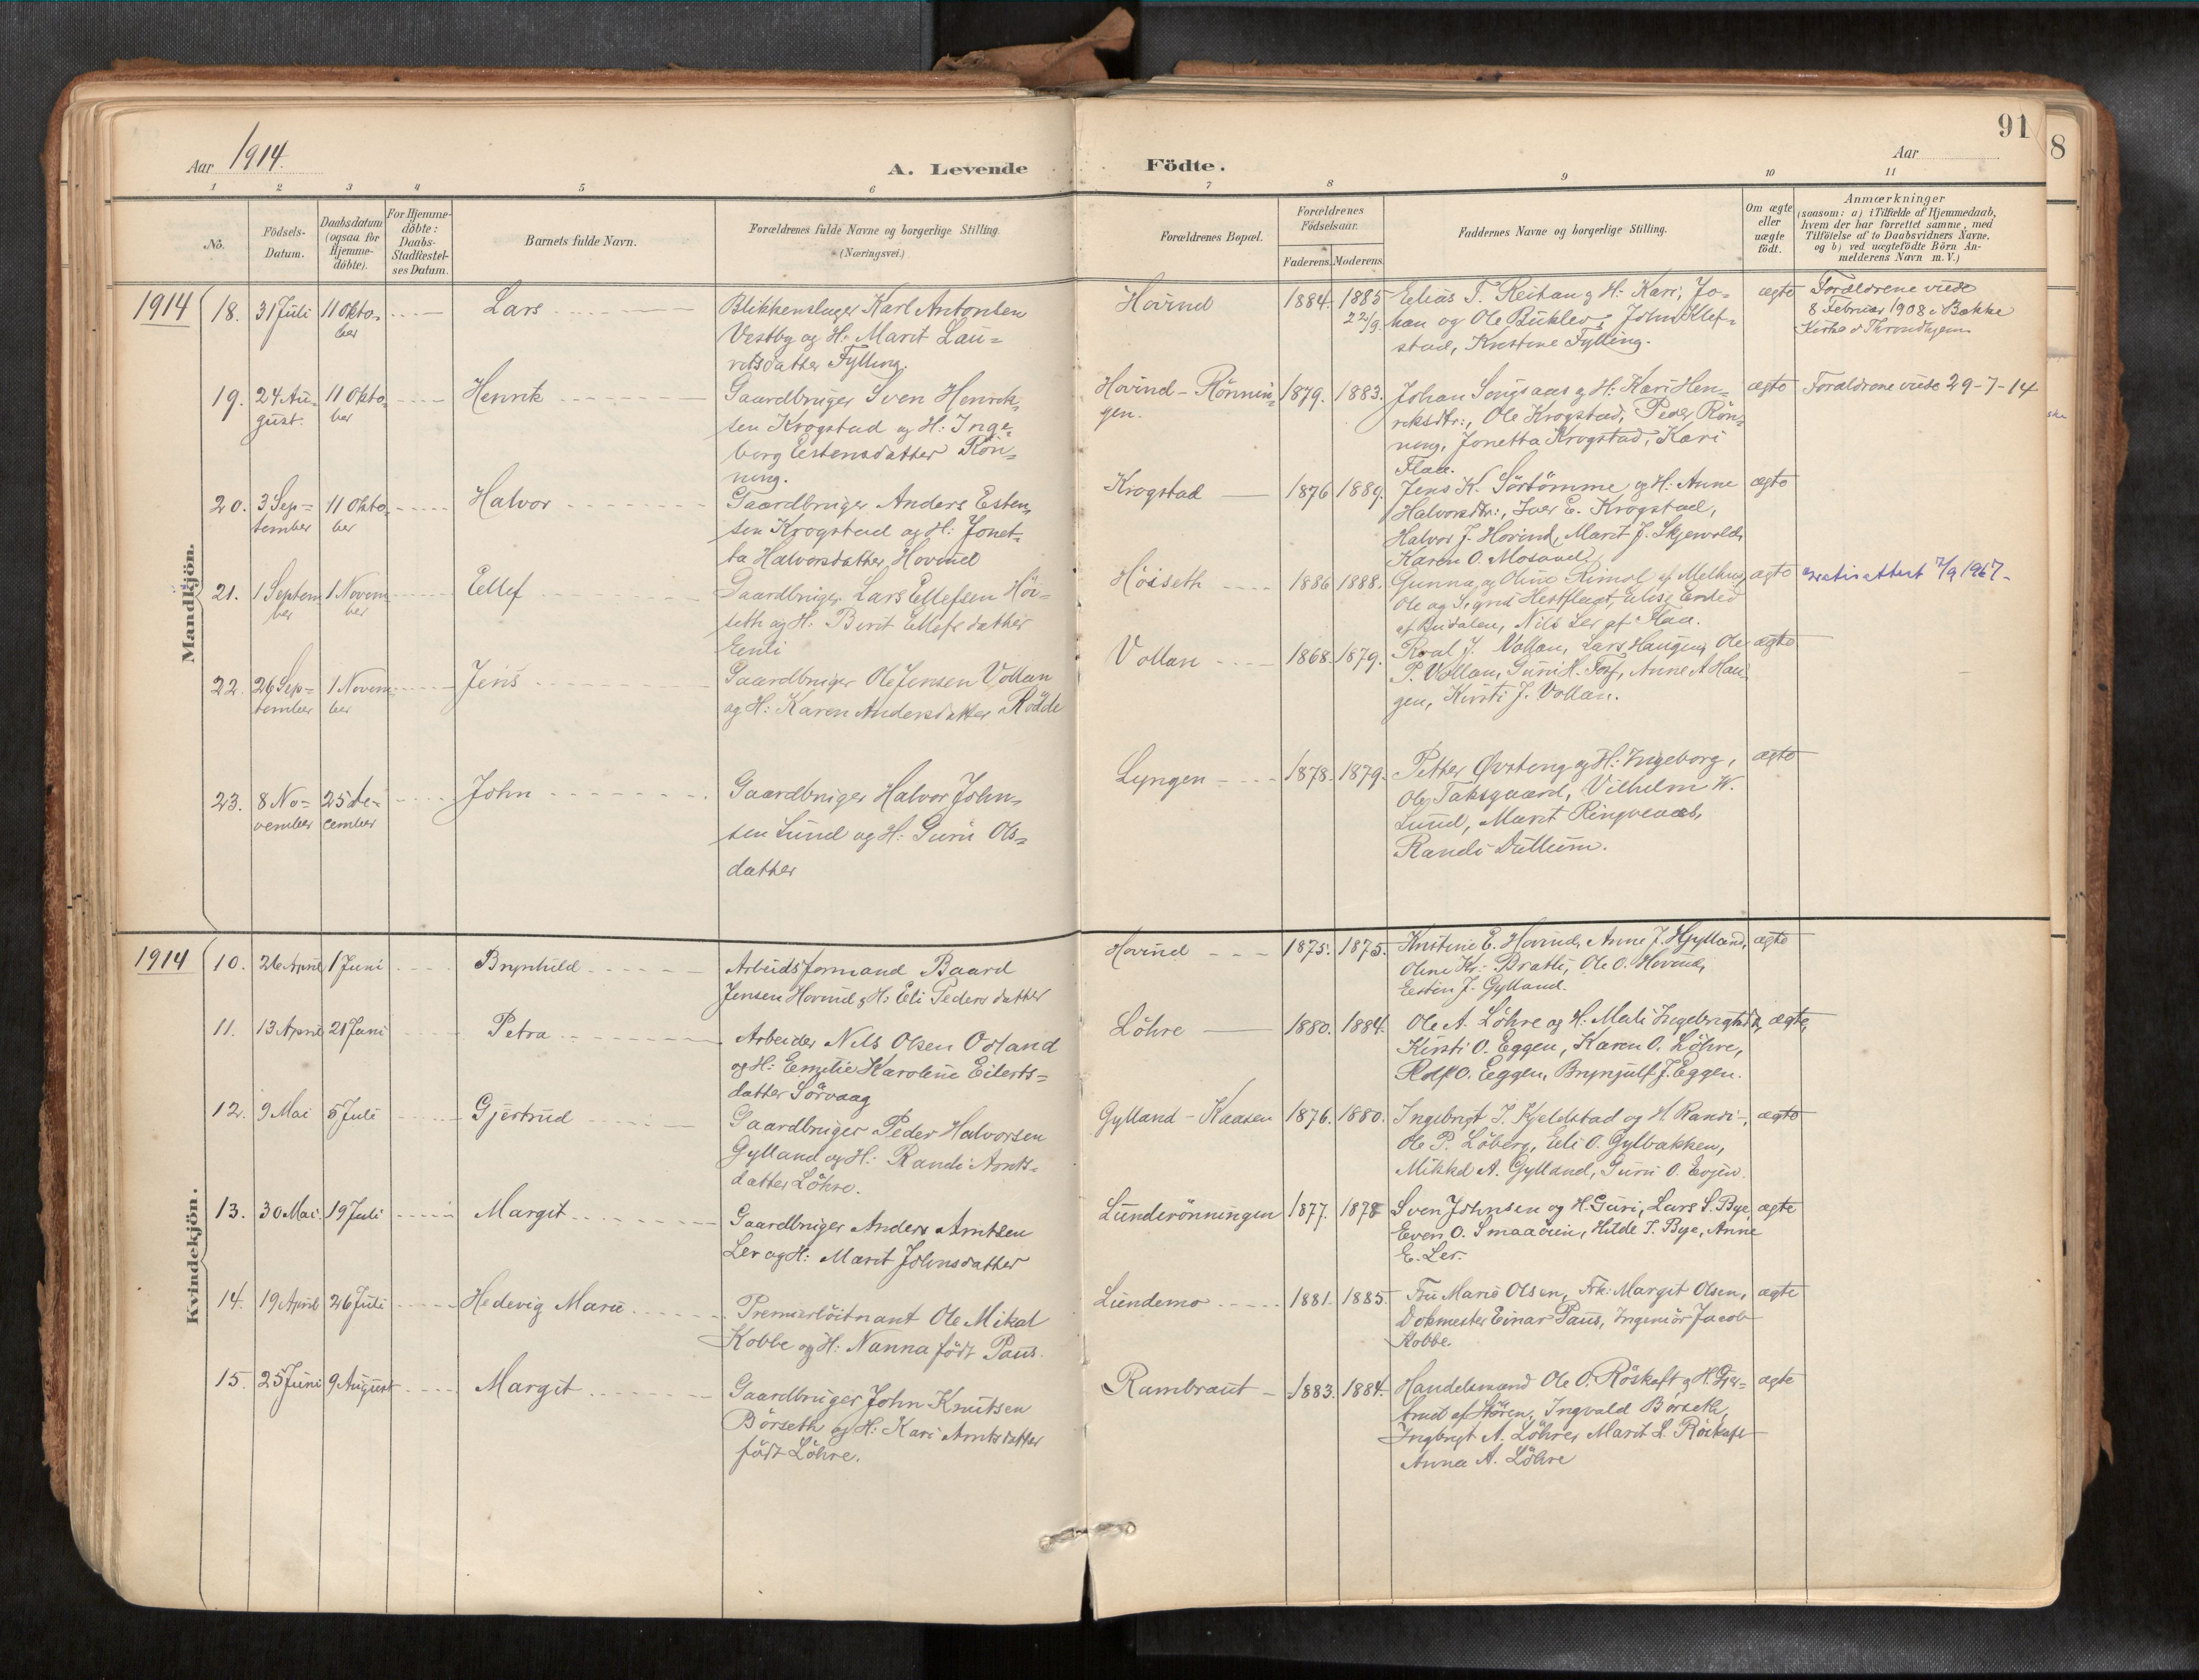 91
8
Aar 1914.
A. Levende Födte.
Aar
1 2 3 4 5 6 7 8 9 10 11
No.
Födsels-
Datum.
Daabsdatum
(ogsaa for
Hjemme-
döbte).
For Hjemme-
döbte:
Daabs-
Stadfæstel-
ses Datum.
Barnets fulde Navn.
Forældrenes fulde Navne og borgerlige Stilling.
(Næringsvei.)
Forældrenes Bopæl.
Forældrenes
Födselsaar.
Faderens. Moderens.
Faddernes Navne og borgerlige Stilling.
Om ægte
eller
uægte
födt.
Anmærkninger
(saasom: a) i Tilfælde af Hjemmedaab,
hvem der har forrettet samme, med
Tilföielse af to Daabsvidners Navne,
og b) ved uægtefödte Börn An-
melderens Navn m. V.)
Mandkjön.
1914
18. 31 Juli 11 Okto-
ber
Lars
Blikkenslager Karl Antonsen
Vestby og H: Marit Lau=
ritsdatter Fylling.
Hovind
1884. 1885
22/9.
Elias T. Reitan og H: Kari; Jo-
han og Ole Buklev, John Klef=
stad, Kristine Fylling.
ægte
Forældrene viede
8 Februar 1908 i Bakke
Kirke i Throndhjem
19. 24 Au-
gust.
11 Okto-
ber
Henrik
Gaardbruger Sven Henrik-
sen Krogstad og H: Inge-
borg Estensdatter Rön=
ning.
Hovind - Rönnin=
gen.
1879. 1883.
Johan Songsaas og H: Kari Hen=
riksdtr:, Ole Krogstad, Peder Rön=
ning, Jonetta Krogstad, Kari
Flaa.
ægte
Forældrene viede 29-7-14
20. 3 Sep=
tember
11 Okto-
ber
Halvor
Gaardbruger Anders Esten=
sen Krogstad og H: Jonet=
ta Halvorsdatter Hovind
Krogstad
1876 1889.
Jens K. Sörtömme og H: Anne
Halvorsdtr:, Iver E. Krogstad,
Halvor J. Hovind, Marit J. Skjervold,
Karen O. Mosand,
ægte
21. 1 Septem
ber
1 Novem
ber
Ellef
Gaardbruger Lars Ellefsen Höi=
seth og H: Berit Ellefsdatter
Enli
Höiseth
1886 1888.
Gunna og Oline Rimol af Melhus,
Ole og Sigrid Hestflagt,
af Budalen, Nils Ler af Flaa.
ægte
attest 7/9 1967-
22. 26 Sep=
tember
1 Novem
ber
Jens
Gaardbruger Ole Jensen Vollan
og H: Karen Andersdatter Rödde
Vollan
1868. 1879.
Roal J. Vollan, Lars Haugen, Ole
P. Vollan, Guru H. Foss, Anne A Hau
gen, Kirsti J. Vollan.
ægte
23. 8 No=
vember
25 de-
cember
John
Gaardbruger Halvor John=
sen Lund og H: Guru Ols=
datter
Lyngen
1878. 1879.
Petter Øvsteng og H: Ingeborg,
Ole Taksgaard, Vilhelm W.
Lund, Marit Ringvenaas,
Randi Dullum.
ægte
Kvindekjön.
1914
10. 26 April 1 Juni
Brynhild
Arbeidsformand Baard
Jensen Hovind og H: Eli Pedersdatter
Hovind
1875. 1875.
Kristine E. Hovind, Anne J. Hylland,
Oline Kr: Bratli, Ole O. Hovind,
Eestin J. Gylland.
ægte
11. 13 April 21 Juni
Petra
Arbeider Nils Olsen Osland
og H: Emelie Karoline Eilerts=
datter Sörvaag
Löhre
1880. 1884.
Ole A. Löhre og H: Mali Ingebrigtsd.,
Kirsti O. Eggen, Karen O. Löhre,
Rolf O. Eggen, Brynjulf J. Eggen.
ægte
12. 9 Mai 5 Juli
Gjertrud
Gaardbruger Peder Halvorsen
Gylland og H: Randi Arnts=
datter Löhre.
Gylland - Kaasen
1876. 1880.
Ingebrigt I. Kjeldstad og H Randi,
Ole P. Löberg, Eli O. Gylbakken,
Mikkel A. Gylland, Guru O. Evjen.
ægte
13. 30 Mai. 19 Juli
Margit
Gaardbruger Anders Arntsen
Ler og H: Marit Johnsdatter
Lunderönningen
1877. 1878
Sven Johnsen og H. Guri, Lars S. Bye,
Even O. Smaaöien, Hilde T. Bye, Anne
E. Ler.
ægte
14. 19 April 26 Juli
Hedevig Marie
Premierlöitnant Ole Mikal
Kobbe og H: Nanna födt Paus.
Lundemo
1881. 1885.
Fru Marie Olsen, Frk: Margit Olsen,
Dokmester Einar Paus, Ingeniör Jacob
Kobbe.
ægte
15. 25 Juni 9 August
Margit
Gaardbruger John Knutsen
Börseth og H: Kari Arntsdatter
födt Löhre.
Rambraut
1883. 1884.
Handelsmand Ole O. Röskaft og H. Gjer=
trud af Stören, Ingvald Börseth,
Ingbrigt A. Löhre, Marit L. Röskaft
Anna A. Löhre
ægte